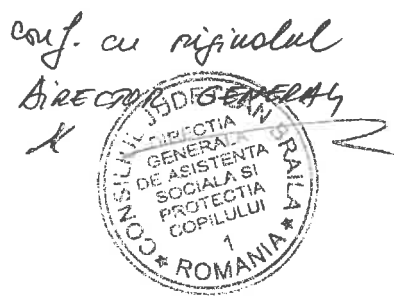 conf. cu originalul
DIRECTOR GENERAL
CONSILIUL JUDETEAN BRAILA
DIRECTIA
GENERALA
DE ASISTENTA
SOCIALA SI
PROTECTIA
COPILULUI
1
* ROMANIA *